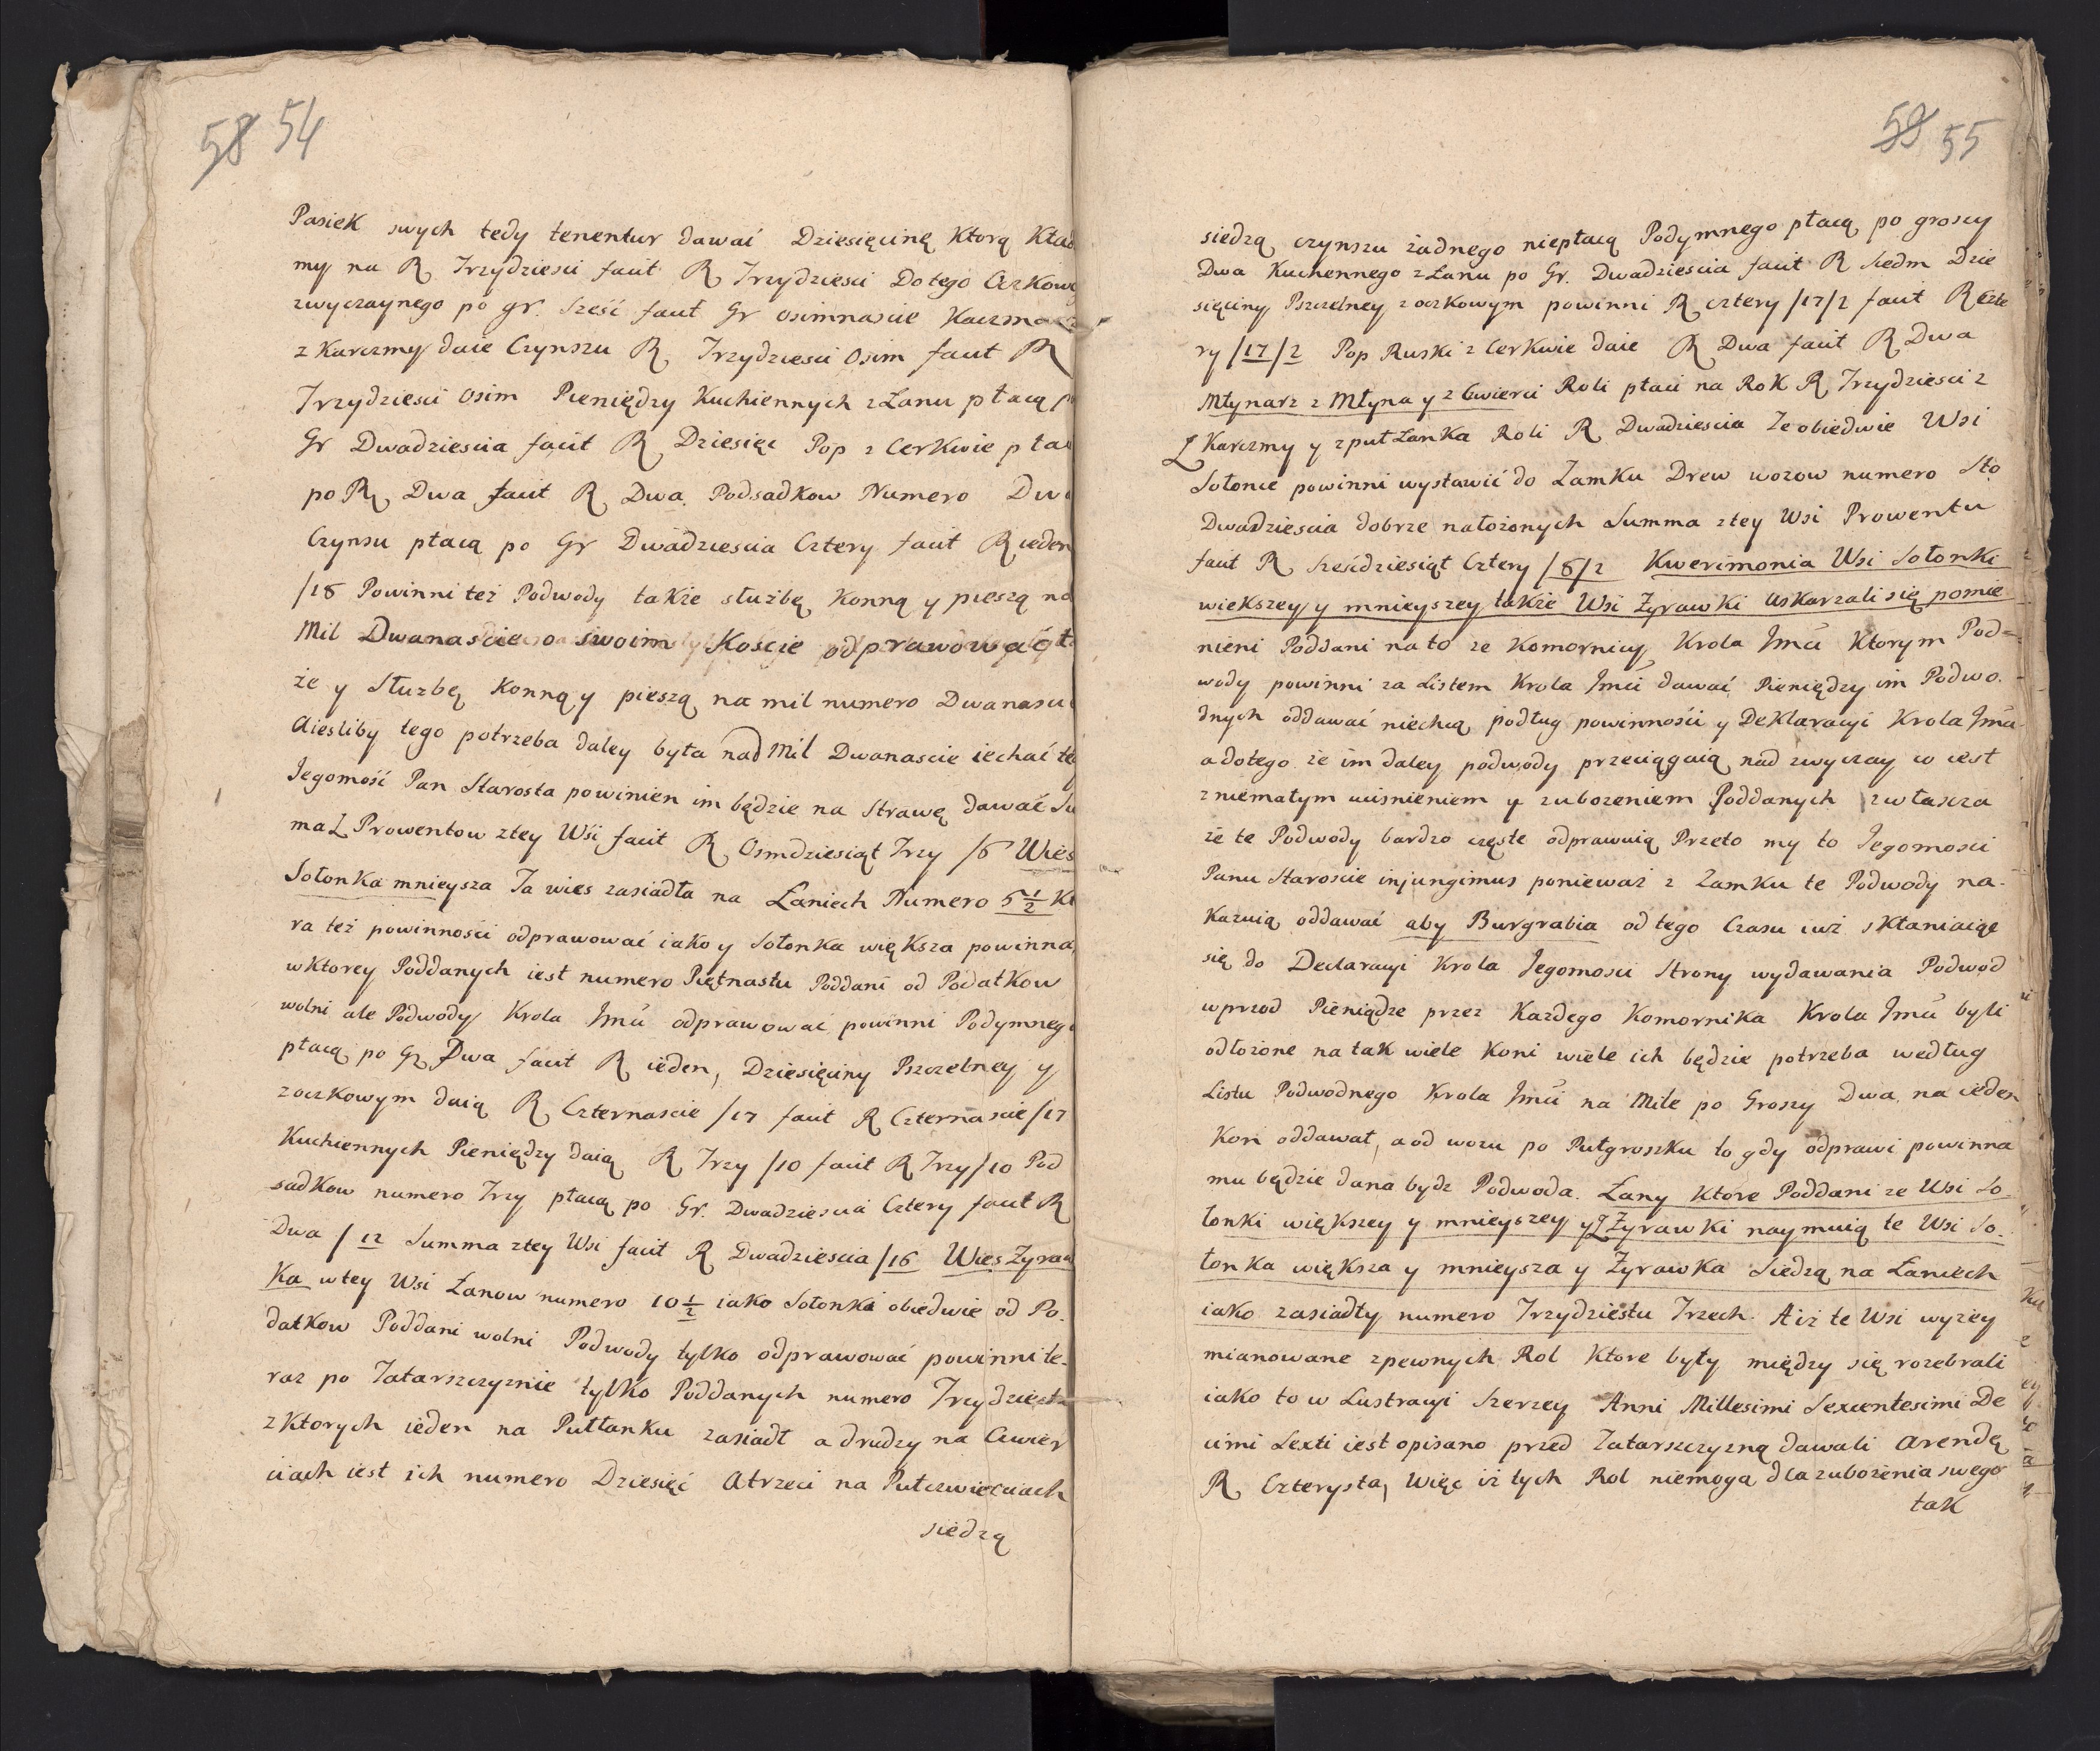 58 54
Pasiek swych tedy tenentur dawać Dziesięcinę Ktorą Kład
my na R Trzydziesci facit R Trzydziesci Dotego Oczkowe
zwyczaynego po gr. Sześć facit Gr osimnascie Kaczma
z Karczmy daie Czynszu R Trzydziesci Osim facit R
Trzydziesci Osim Pieniędzy Kuchiennych z Łanu płacą p
Gr Dwadziescia facit R Dziesięc Pop z Cerkwie pła
po R Dwa facit R Dwa Podsadkow Numero Dwa
Czynsu płacą po Gr Dwadziescia Cztery facit R ieden
/18 Powinni tez Podwody takze służbę Konną y pieszą na
Mil Dwanascie o swoim Koscie odprawować
że y Służbę Konną y pieszą na mil numero Dwanasci
Aiesliby tego potrzeba daley była nad Mil Dwanascie iechać te
Jegomość Pan Starosta powinien im będzie na Strawę dawać Su
ma Z Prowentow ztey Wśi facit R Osmdziesiąt Trzy /6 Wies
Sołonka mnieysza Ta wies zasiadła na Łaniech Numero 5 1/2 Kt
ra też powinnosci odprawować iako y Sołonka większa powinna,
wktorey Poddanych iest numero Piętnastu Poddani od Podatkow
wolni ale Podwody Krola Jmci odprawować powinni Podymnego
płacą po Gr Dwa facit R ieden, Dziesięciny Pszczelney y
zoczkowym daią R Czternascie /17 facit R Czternascie /17
Kuchiennych Pieniędzy daią R Trzy /10 facit R Trzy /10 Pod
sadkow numero Trzy płacą po Gr. Dwadziescia Cztery facit R
Dwa / 12 Summa ztey Wsi facit R Dwadziescia /16 Wies Zyraw
Ka wtey Wsi Łanow numero 10 1/2 iako Sołonki obiedwie od Po.
datkow Poddani wolni Podwody tylko odprawować powinni te-
raz po Tatarszczyznie tylko Poddanych numero Trzydziest
z Ktorych ieden na Pułłanku zasiadł a drudzy na Cwier
ciach iest ich numero Dziesięć Atrzeci na Pułczwierciach
siedzą
59 55
siedzą czynszu żadnego niepłacą Podymnego płacą po groszy
Dwa Kuchennego z Łanu po Gr. Dwadziescia facit R Siedm Dzie
sięciny Pszczelney z oczkowym powinni R cztery /17/2 facit R Czte
ry /17/2 Pop Ruski z Cerkwie daie R Dwa facit R Dwa
Młynarz z Młyna y z Cwierci Roli płaci na Rok R Trzydziesci z
Z Karczmy y zpułŁanka Roli R Dwadziescia Ze obiedwie Wsi
Sołonce powinni wystawić do Zamku Drew wozow numero Sto
Dwadziescia dobrze nałożonych Summa ztey Wsi Prowentu
facit R Sześćdziesiąt Cztery /8/2 Kwerimonia Wsi Sołonki
wiekszey y mnieyszey także Wsi Zyrawki Uskarzali się pomie
nieni Poddani na to ze Komornicy Krola Jmci Ktorym Pod=
wody powinni za Listem Krola Jmci dawać Pieniędzy im Podwo.
dnych oddawać niechcą podług powinnośći y Deklaracyi Krola Jmci
a dotego że im daley podwody przeciągaią nad zwyczay co iest
z niemałym uciśnieniem y zubożeniem Poddanych zwłascza
że te Podwody bardzo częste odprawuią Przeto my to Jegomosci
Panu Staroscie injungimus ponieważ z Zamku te Podwody na-
kazuią oddawać aby Burgrabia od tego Czasu iuż skłaniaiąc
się do Declaracyi Krola Jegomosci Strony wydawania Podwod
wprzod Pieniądze przez Kazdego Komornika Krola Jmci byli
odłożone na tak wiele Koni wiele ich będzie potrzeba według
Listu Podwodnego Krola Jmci na Mile po Groszy Dwa na ieden
Kon oddawał, a od wozu po Pułgroszku to gdy odprawi powinna
mu będzie dana bydz Podwoda. Łany Ktore Poddani ze Wsi So
łonki większey y mnieyszey y Z Zyrawki naymuią te Wsi So.
łonka większa y mnieysza y Zyrawka Siedzą na Łaniech
iako zasiadły numero Trzydziestu Trzech. A iż te Wsi wyzey
mianowane zpewnych Rol Ktore były między się rozebrali
iako to w Lustracyi Szerzey Anni Millesimi Sexcentesimi De
cimi Sexti iest opisano przed Tatarszczyzną dawali arendę
R Czterysta, Więc iż tych Rol niemoga dla zubożenia swego
tak